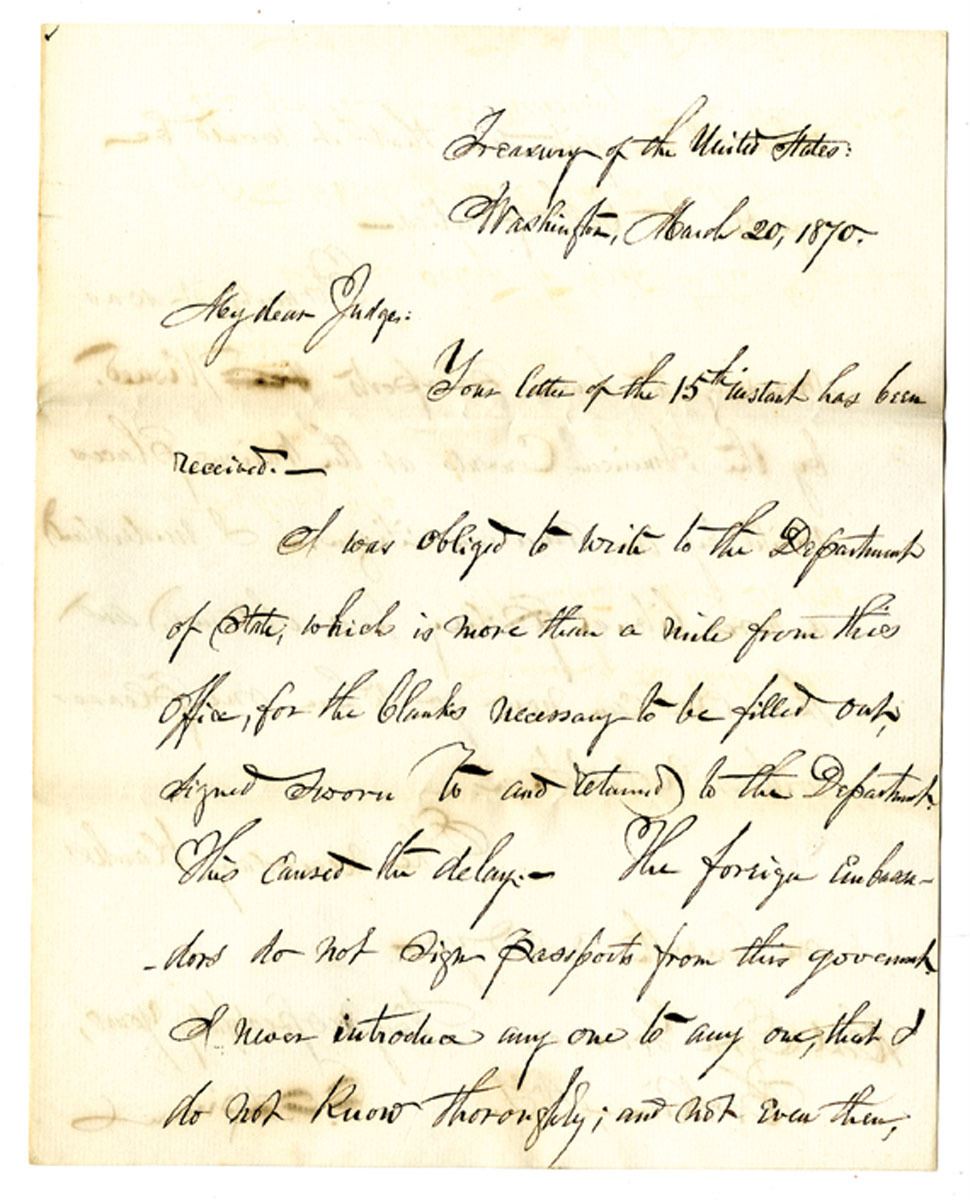 Treasury of the United States:
Washington, March 20, 1870.
My dear Judge:
Your letter of the 15th instant has been
received.—
I was obliged to write to the Department
of State, which is more than a mile from this
office, for the blanks necessary to be filled out,
signed sworn to and returned to the Department.
This caused the delay.— The foreign Embassa-
-dors do not sign passports from this government.
I never introduce any one to any one, that I
do not know thoroughly; and not even then,